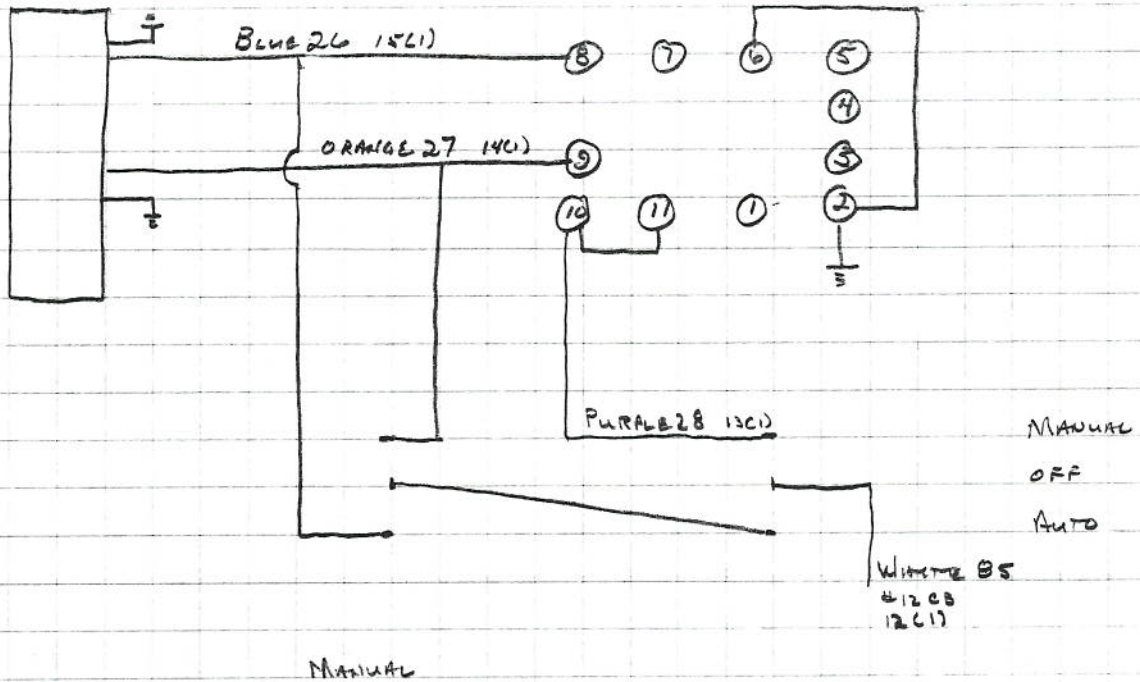 BLUE 26 15(1)
8 7 6 5
4
ORANGE 27 14(1)
9 3
10 11 1 2
PURPLE 28 13(1)
MANUAL
OFF
AUTO
WHITE 85
#12 CB
12(1)
MANUAL